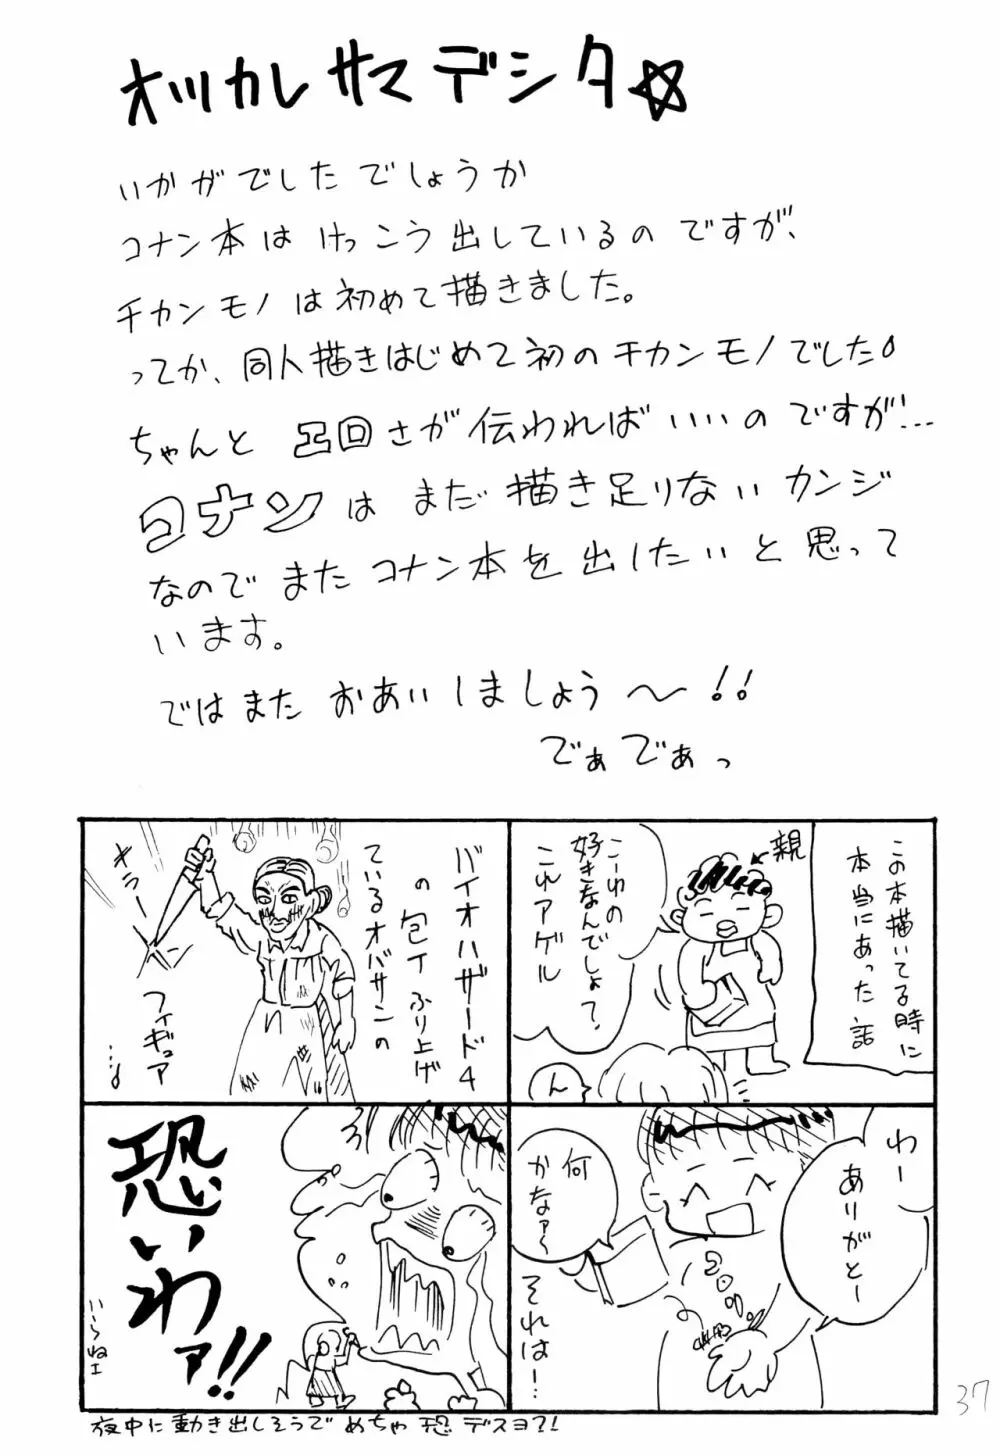 オツカレサマデシタ☆
いかがでしたでしょうか
コナン本はけっこう出しているのですが、
チカンモノは初めて描きました。
ってか、同人描きはじめて初のチカンモノでした
ちゃんと凸凹さが伝わればいいのですが!…
コナンはまだ描き足りないカンジ
なのでまたコナン本を出したいと思って
います。
ではまたおあいしましょう〜!!
でぁでぁっ
この本描いてる時に
本当にあった話
親
こーゆの
好きなんでしょ?
これアゲル
ん
バイオハザード4
の包丁ふり上げ
ているオバサンの
フィギュア
…
キラーン
わー
ありがとー
何
かなァ〜
それは!…
恐いわァ!!
いらねェ
夜中に動き出しそうでめちゃ恐デスヨ?!
37